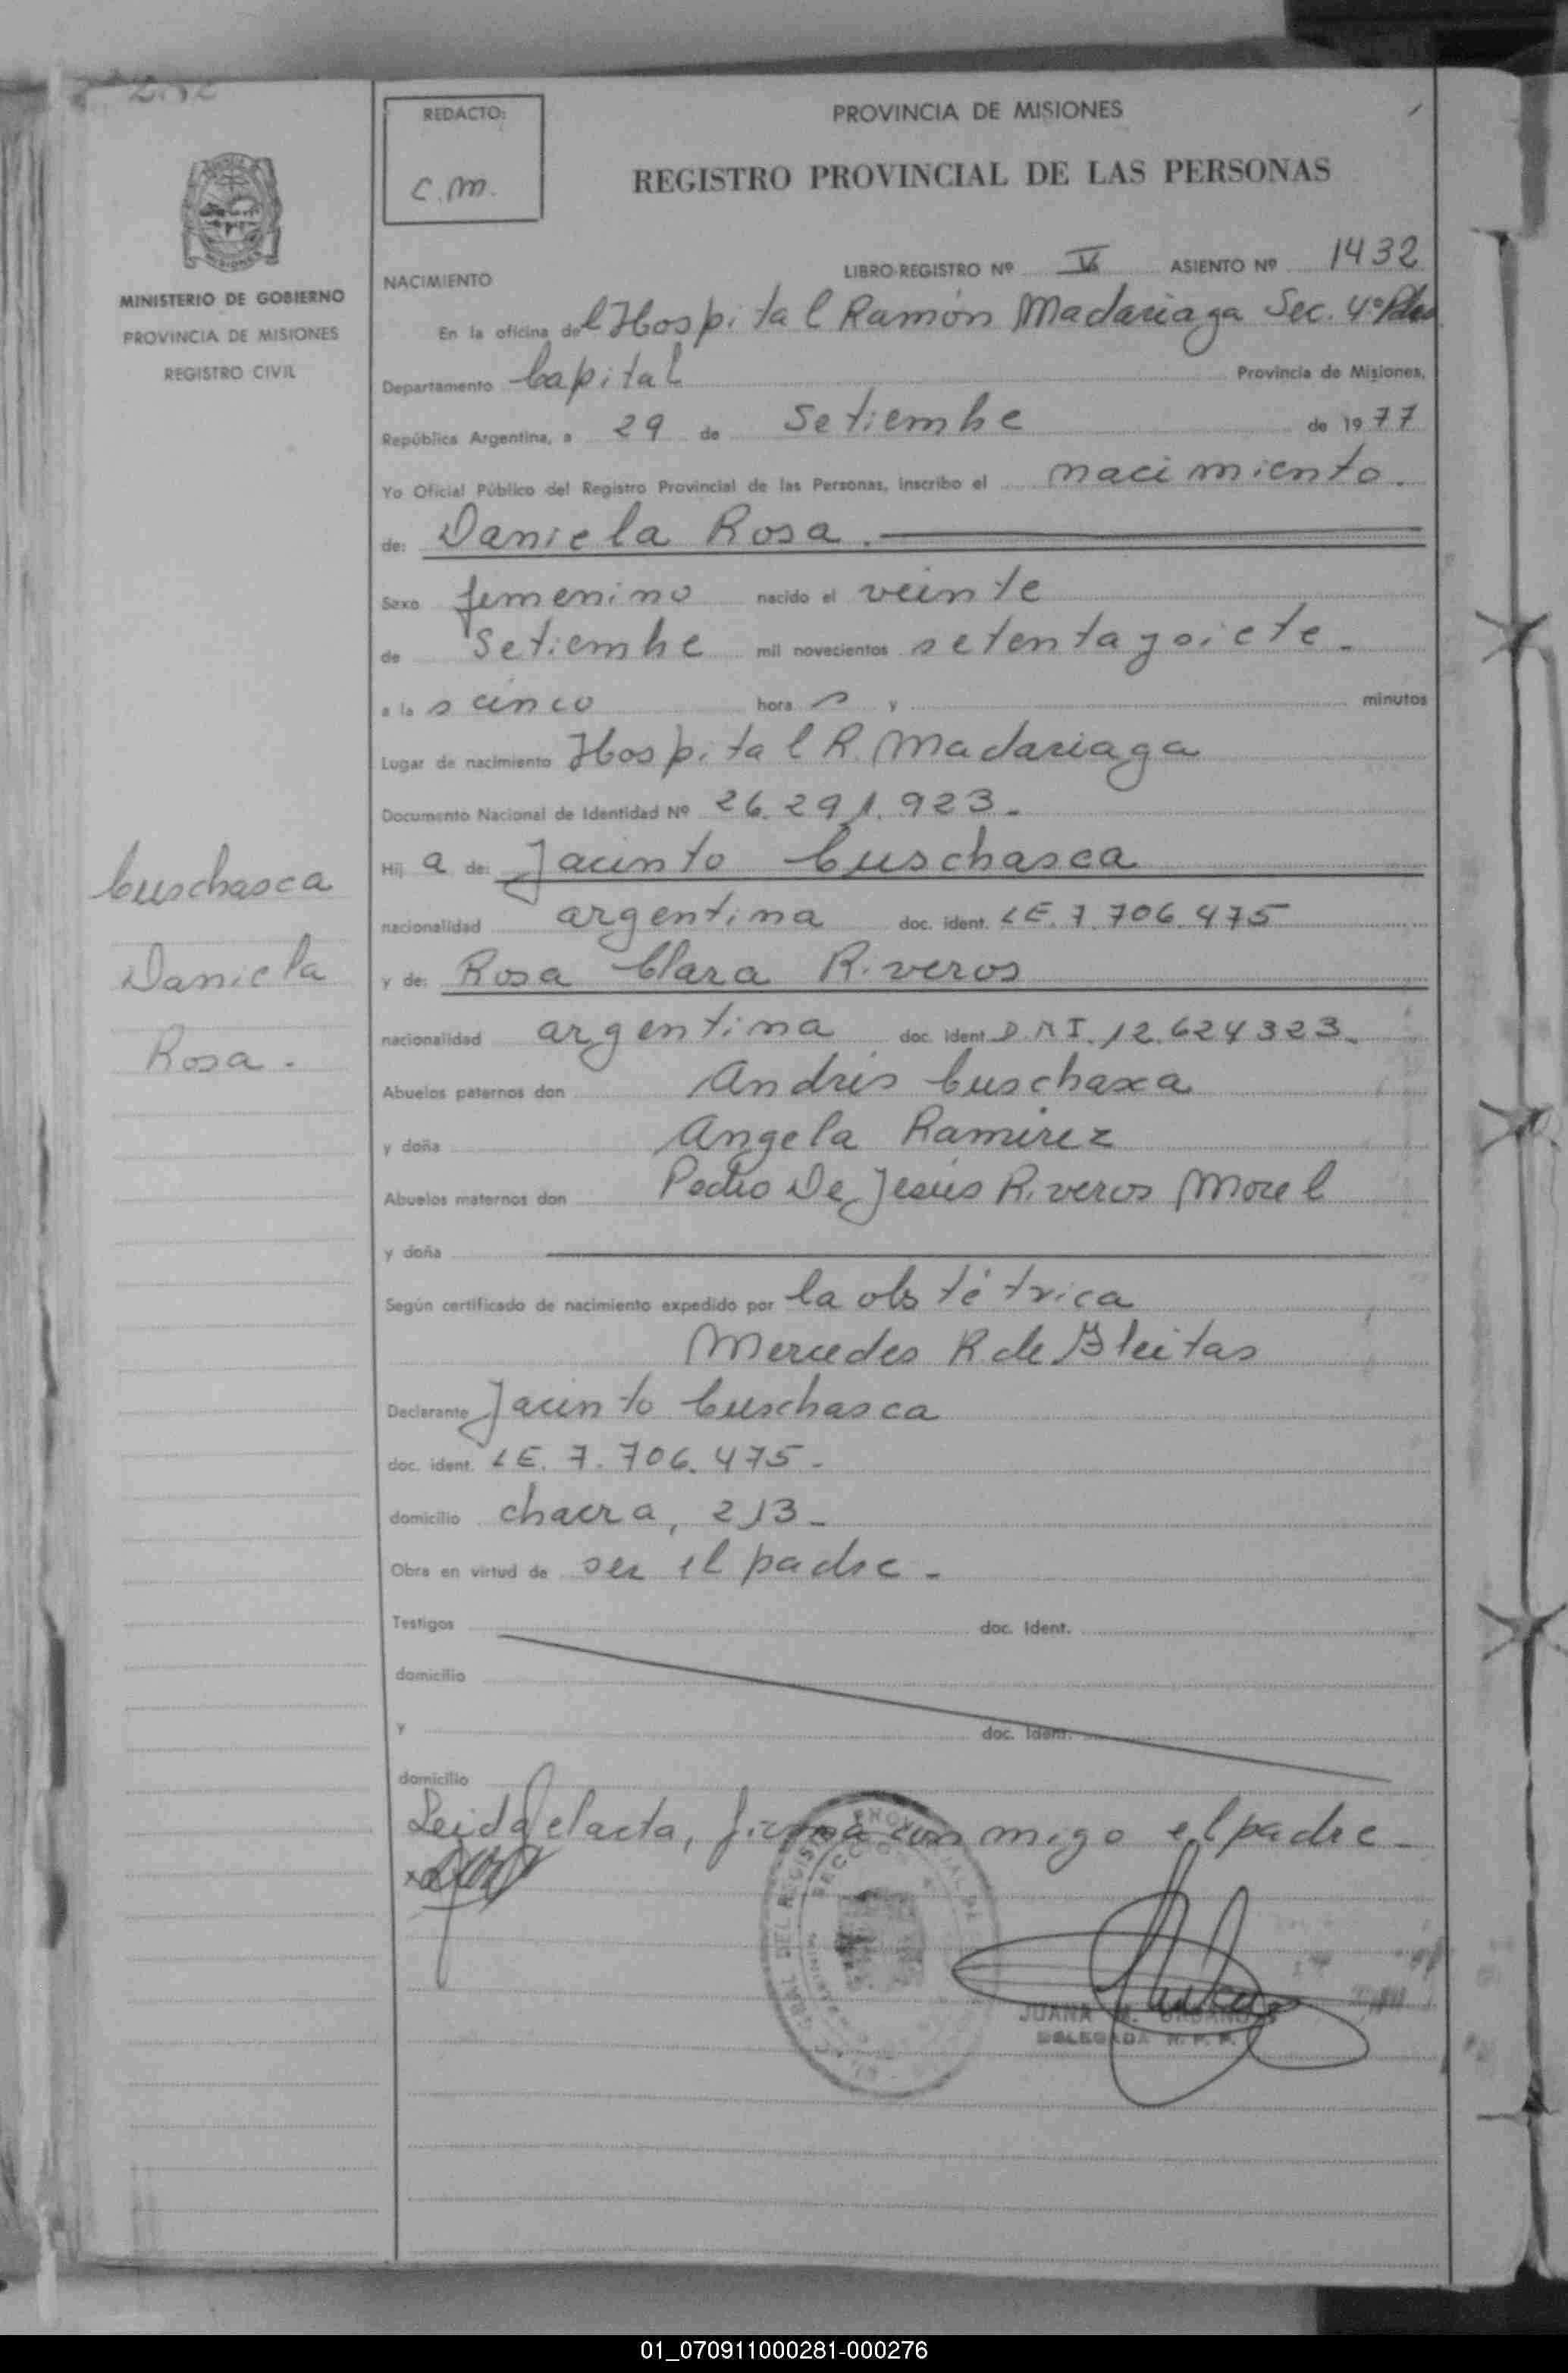 REDACTO:
C.M.
PROVINCIA DE MISIONES
REGISTRO PROVINCIAL DE LAS PERSONAS
MINISTERIO DE GOBIERNO
PROVINCIA DE MISIONES
REGISTRO CIVIL
NACIMIENTO LIBRO-REGISTRO Nº ASIENTO Nº 1432
En la oficina del Hospital Ramón Madariaga Sec. 4º
Departamento Capital Provincia de Misiones,
República Argentina, a 29 de Setiembre de 1977
Yo Oficial Público del Registro Provincial de las Personas, inscribo el nacimiento.
de: Daniela Rosa.
Sexo femenino nacido el veinte
de Setiembre mil novecientos setenta y siete.
a las cinco horas y minutos
Lugar de nacimiento Hospital R. Madariaga
Documento Nacional de Identidad Nº 26.291.923.
Hija de: Jacinto Cuschasca
nacionalidad argentina doc. ident. LE. 7.706.475
y de: Rosa Clara Riveros
nacionalidad argentina doc. ident. D.N.I. 12.624323.
Abuelos paternos don Andrés Cuschasca
y doña Angela Ramirez
Abuelos maternos don Pedro De Jesús Riveros Morel
y doña
Según certificado de nacimiento expedido por la obstétrica
Mercedes R de Gleitas
Declarante Jacinto Cuschasca
doc. ident. LE. 7.706.475.
domicilio chacra, 213
Obra en virtud de ser el padre.
Testigos doc. Ident.
domicilio
y doc. Ident.
domicilio
Leida el acta, firma con migo el padre
JUANA
DELEGADA R. P. P.
Cuschasca
Daniela
Rosa.
01_070911000281-000276